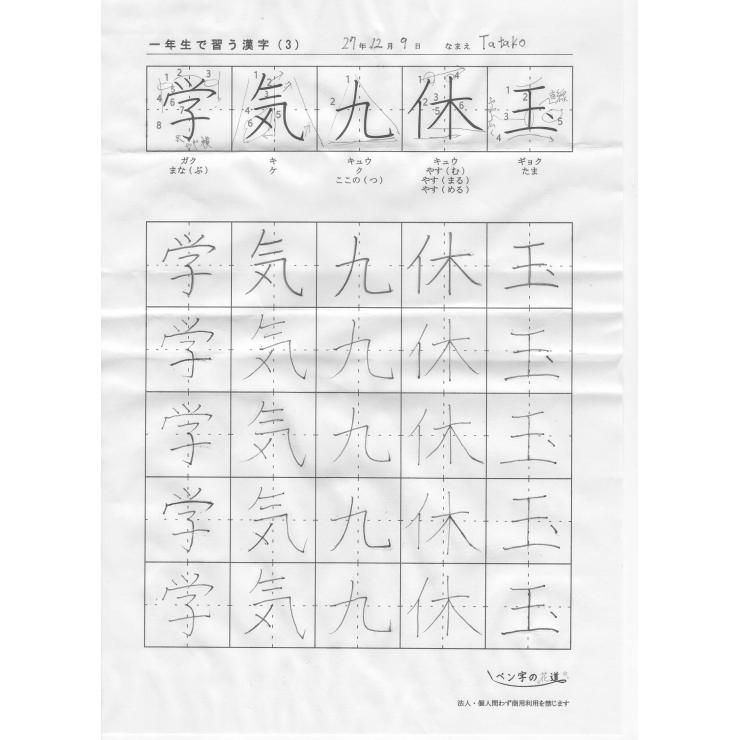 一年生で習う漢字(3) 27年12月9日 なまえ Tatako
学 気 九 休 玉
ガク キ キュウ キュウ ギョク
まな(ぶ) ケ ク やす(む) たま
ここの(つ) やす(まる)
やす(める)
学 気 九 休 玉
学 気 九 休 玉
学 気 九 休 玉
学 気 九 休 玉
学 気 九 休 玉
ペン字の花道
法人・個人問わず商用利用を禁じます